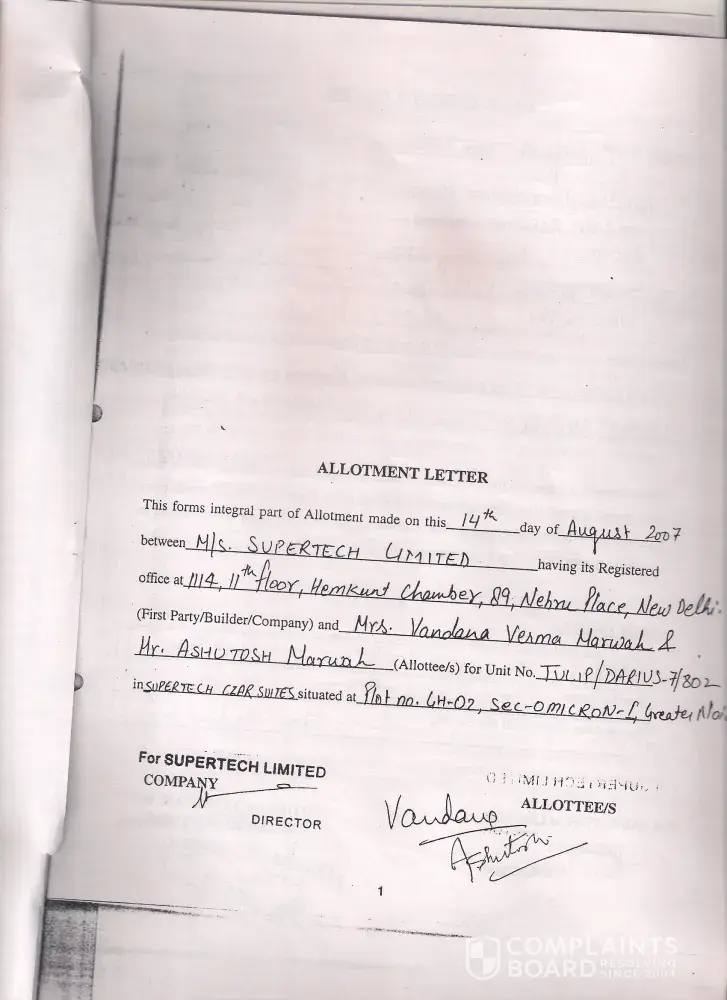 ALLOTMENT LETTER
This forms integral part of Allotment made on this 14th day of August 2007
between M/s. SUPERTECH LIMITED having its Registered
office at 1114, 11th floor, Hemkunt Chamber, 89, Nehru Place, New Delhi.
(First Party/Builder/Company) and Mrs. Vandana Verma Marwah &
Mr. ASHUTOSH Marwah (Allottee/s) for Unit No. TULIP/DARIUS-7/302
in SUPERTECH CZAR SUITES situated at Plot no. GH-02, Sec-OMICRON-I, Greater
For SUPERTECH LIMITED
COMPANY
DIRECTOR
ALLOTTEE/S
Vandana
Ashutosh
1
COMPLAINTS
BOARD RESOLVING
SINCE 2004